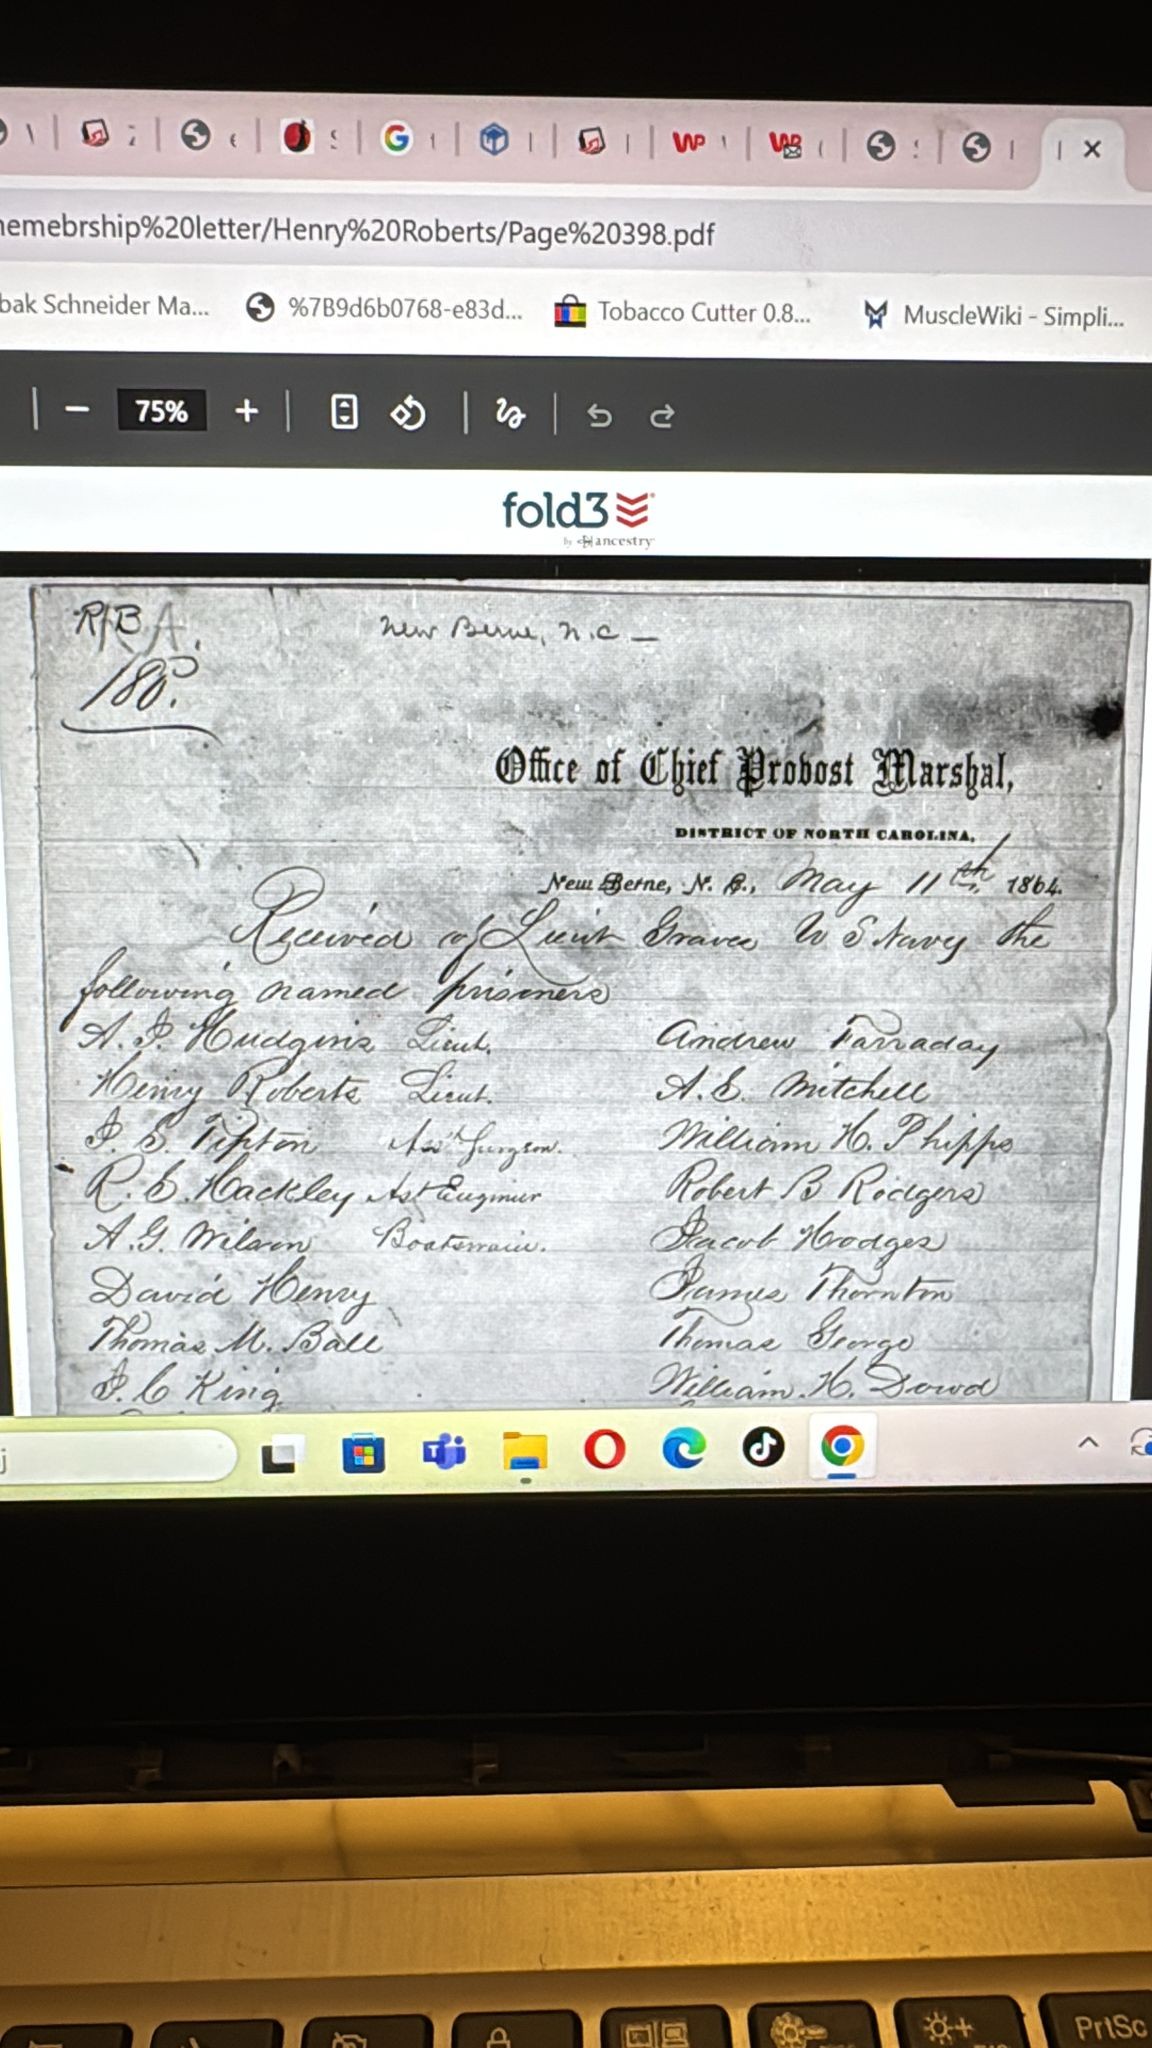 nemebrship%20letter/Henry%20Roberts/Page%20398.pdf
bak Schneider Ma... %7B9d6b0768-e83d... Tobacco Cutter 0.8... MuscleWiki - Simpli...
75%
fold3
by ancestry
R/B A.
180.
New Berne, N.C —
Office of Chief Provost Marshal,
DISTRICT OF NORTH CAROLINA,
New Berne, N. C., May 11th 1864.
Received of Lieut Graves U S Navy the
following named prisoners
A. P. Hudgins Lieut. Andrew Farraday
Henry Roberts Lieut. A. E. Mitchell
J. S. Tipton Asst Surgeon. William H. Phipps
R. S. Hackley Ast Enginier Robert B Rodgers
A. G. Wilson Boatswain. Jacob Hodges
David Henry James Thornton
Thomas M. Ball Thomas George
J. C King William. H. Dowd
PrtSc